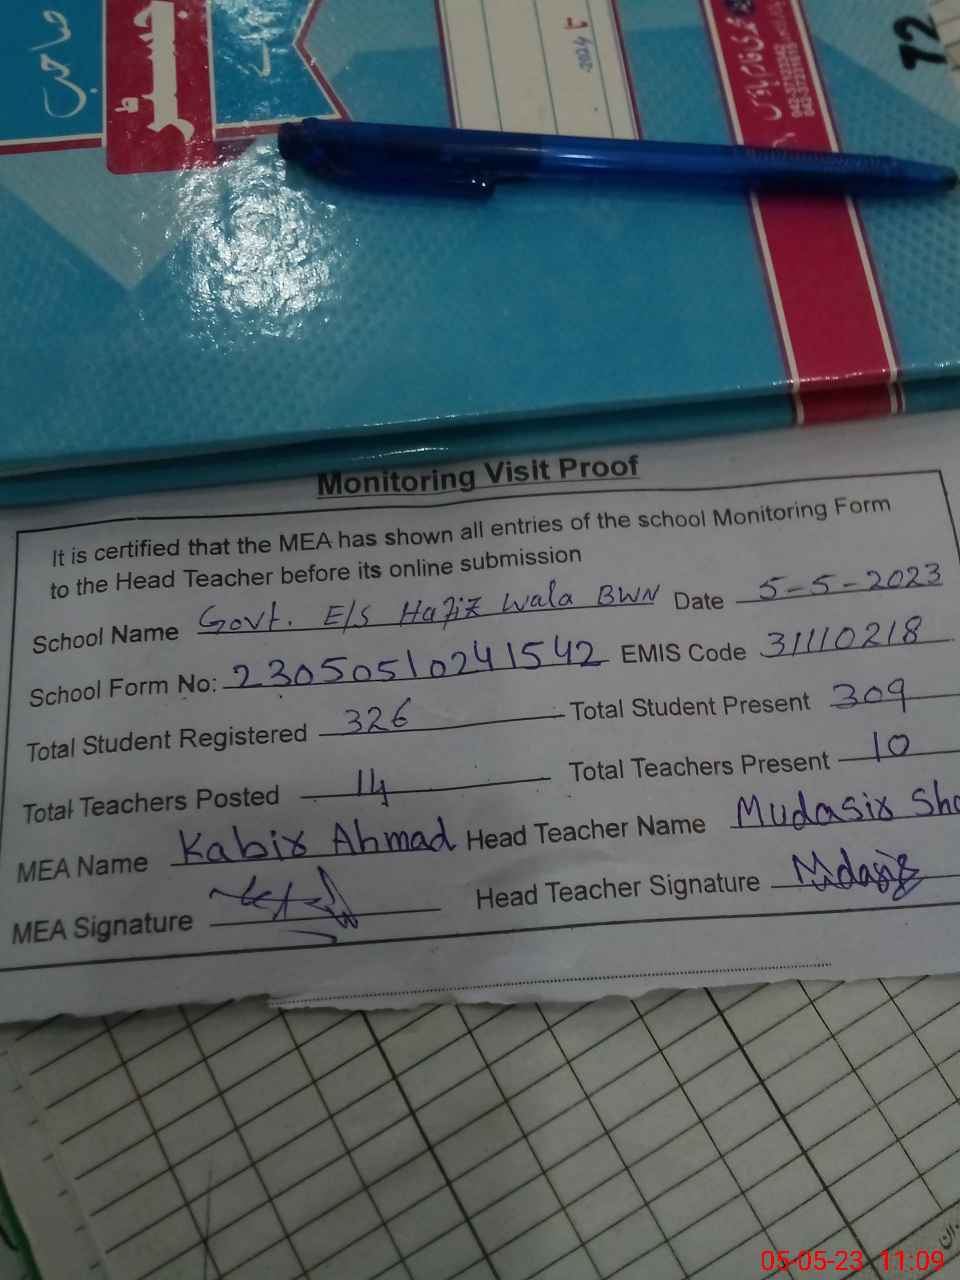 صاحب
رجسٹر
2024
042-37232042
042-37211619
72
Monitoring Visit Proof
It is certified that the MEA has shown all entries of the school Monitoring Form
to the Head Teacher before its online submission
School Name Govt. E/S Hafiz Wala BWN Date 5-5-2023
School Form No: 23050510241542 EMIS Code 31110218
Total Student Registered 326 Total Student Present 309
Total Teachers Posted 14 Total Teachers Present 10
MEA Name Kabir Ahmad Head Teacher Name Mudasir Sha
MEA Signature Head Teacher Signature Mdasir
05-05-23 11:09